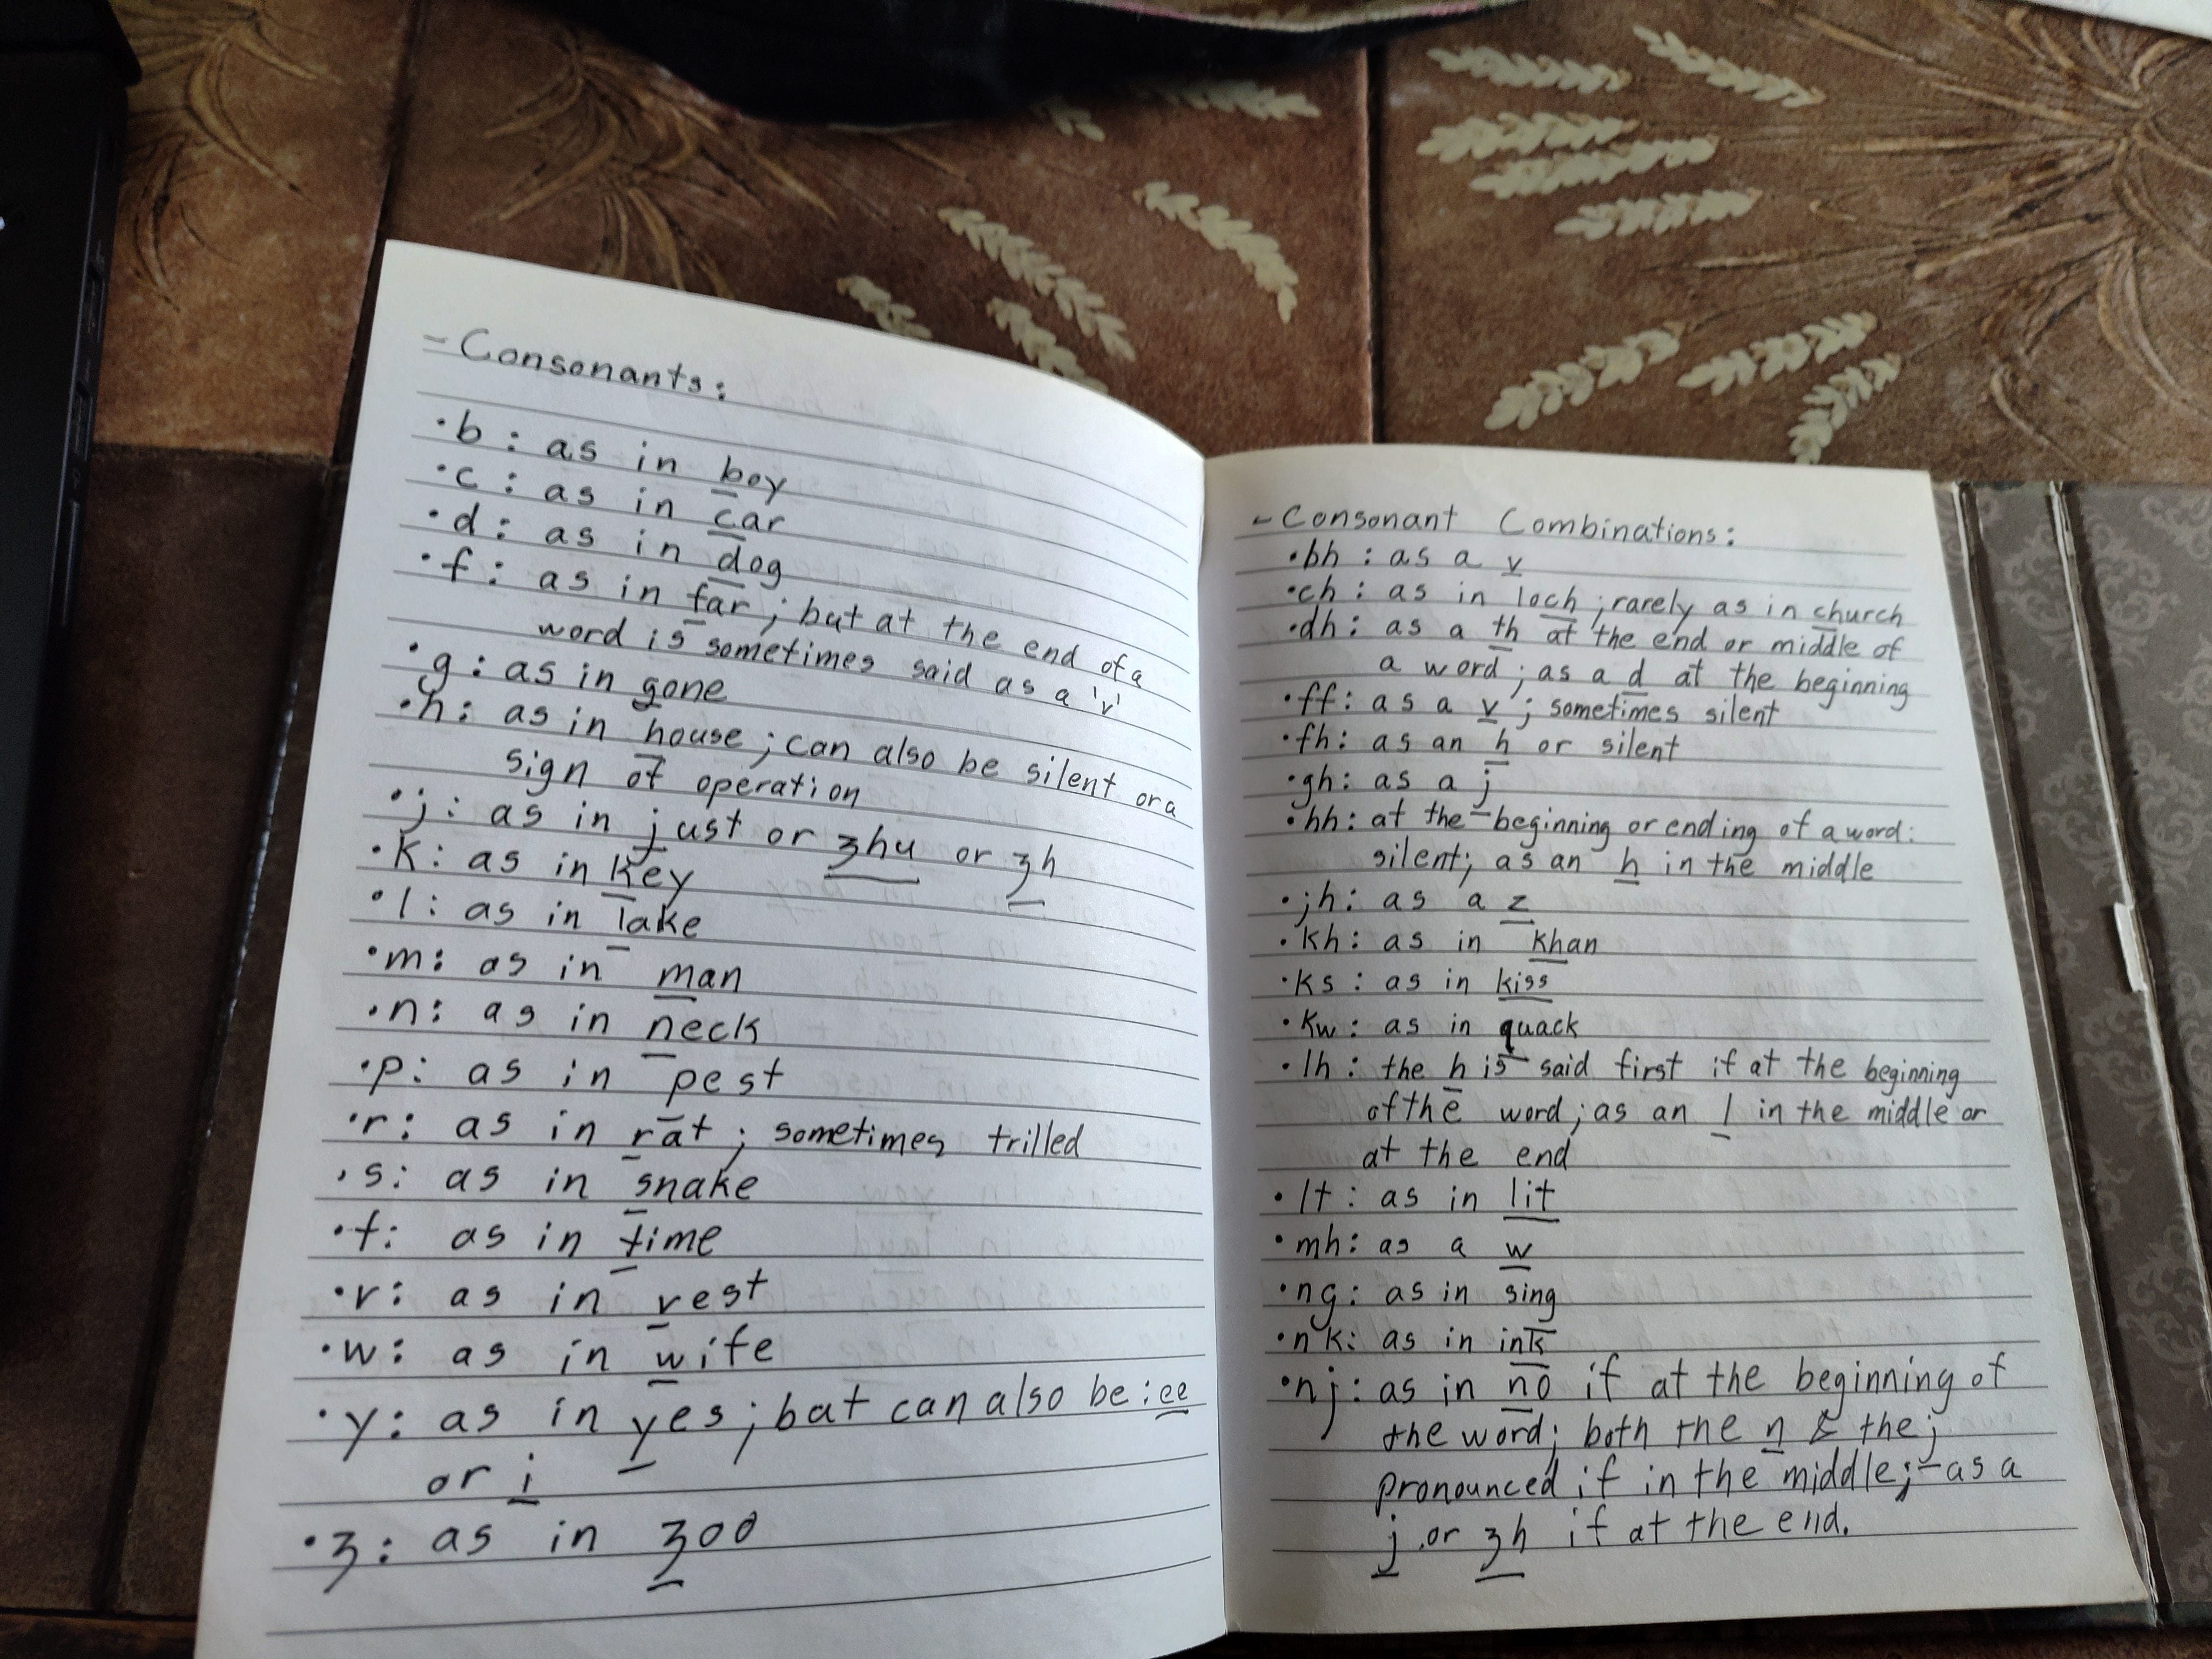 - Consonants:
• b : as in boy
• c : as in car
• d : as in dog
• f : as in far ; but at the end of a
word is sometimes said as a 'v'
• g : as in gone
• h : as in house ; can also be silent or a
sign of operation
• j : as in just or zhu or zh
• k : as in key
• l : as in lake
• m : as in man
• n : as in neck
• p : as in pest
• r : as in rat ; sometimes trilled
• s : as in snake
• t : as in time
• v : as in vest
• w : as in wife
• y : as in yes ; but can also be : ee
or i
• z : as in zoo
- Consonant Combinations:
• bh : as a v
• ch : as in loch ; rarely as in church
• dh : as a th at the end or middle of
a word ; as a d at the beginning
• ff : as a v ; sometimes silent
• fh : as an h or silent
• gh : as a j
• hh : at the beginning or ending of a word :
silent ; as an h in the middle
• jh : as a z
• kh : as in khan
• ks : as in kiss
• kw : as in quack
• lh : the h is said first if at the beginning
of the word ; as an l in the middle or
at the end
• lt : as in lit
• mh : as a w
• ng : as in sing
• nk : as in ink
• nj : as in no if at the beginning of
the word ; both the n & the j
pronounced if in the middle ; as a
j or zh if at the end.